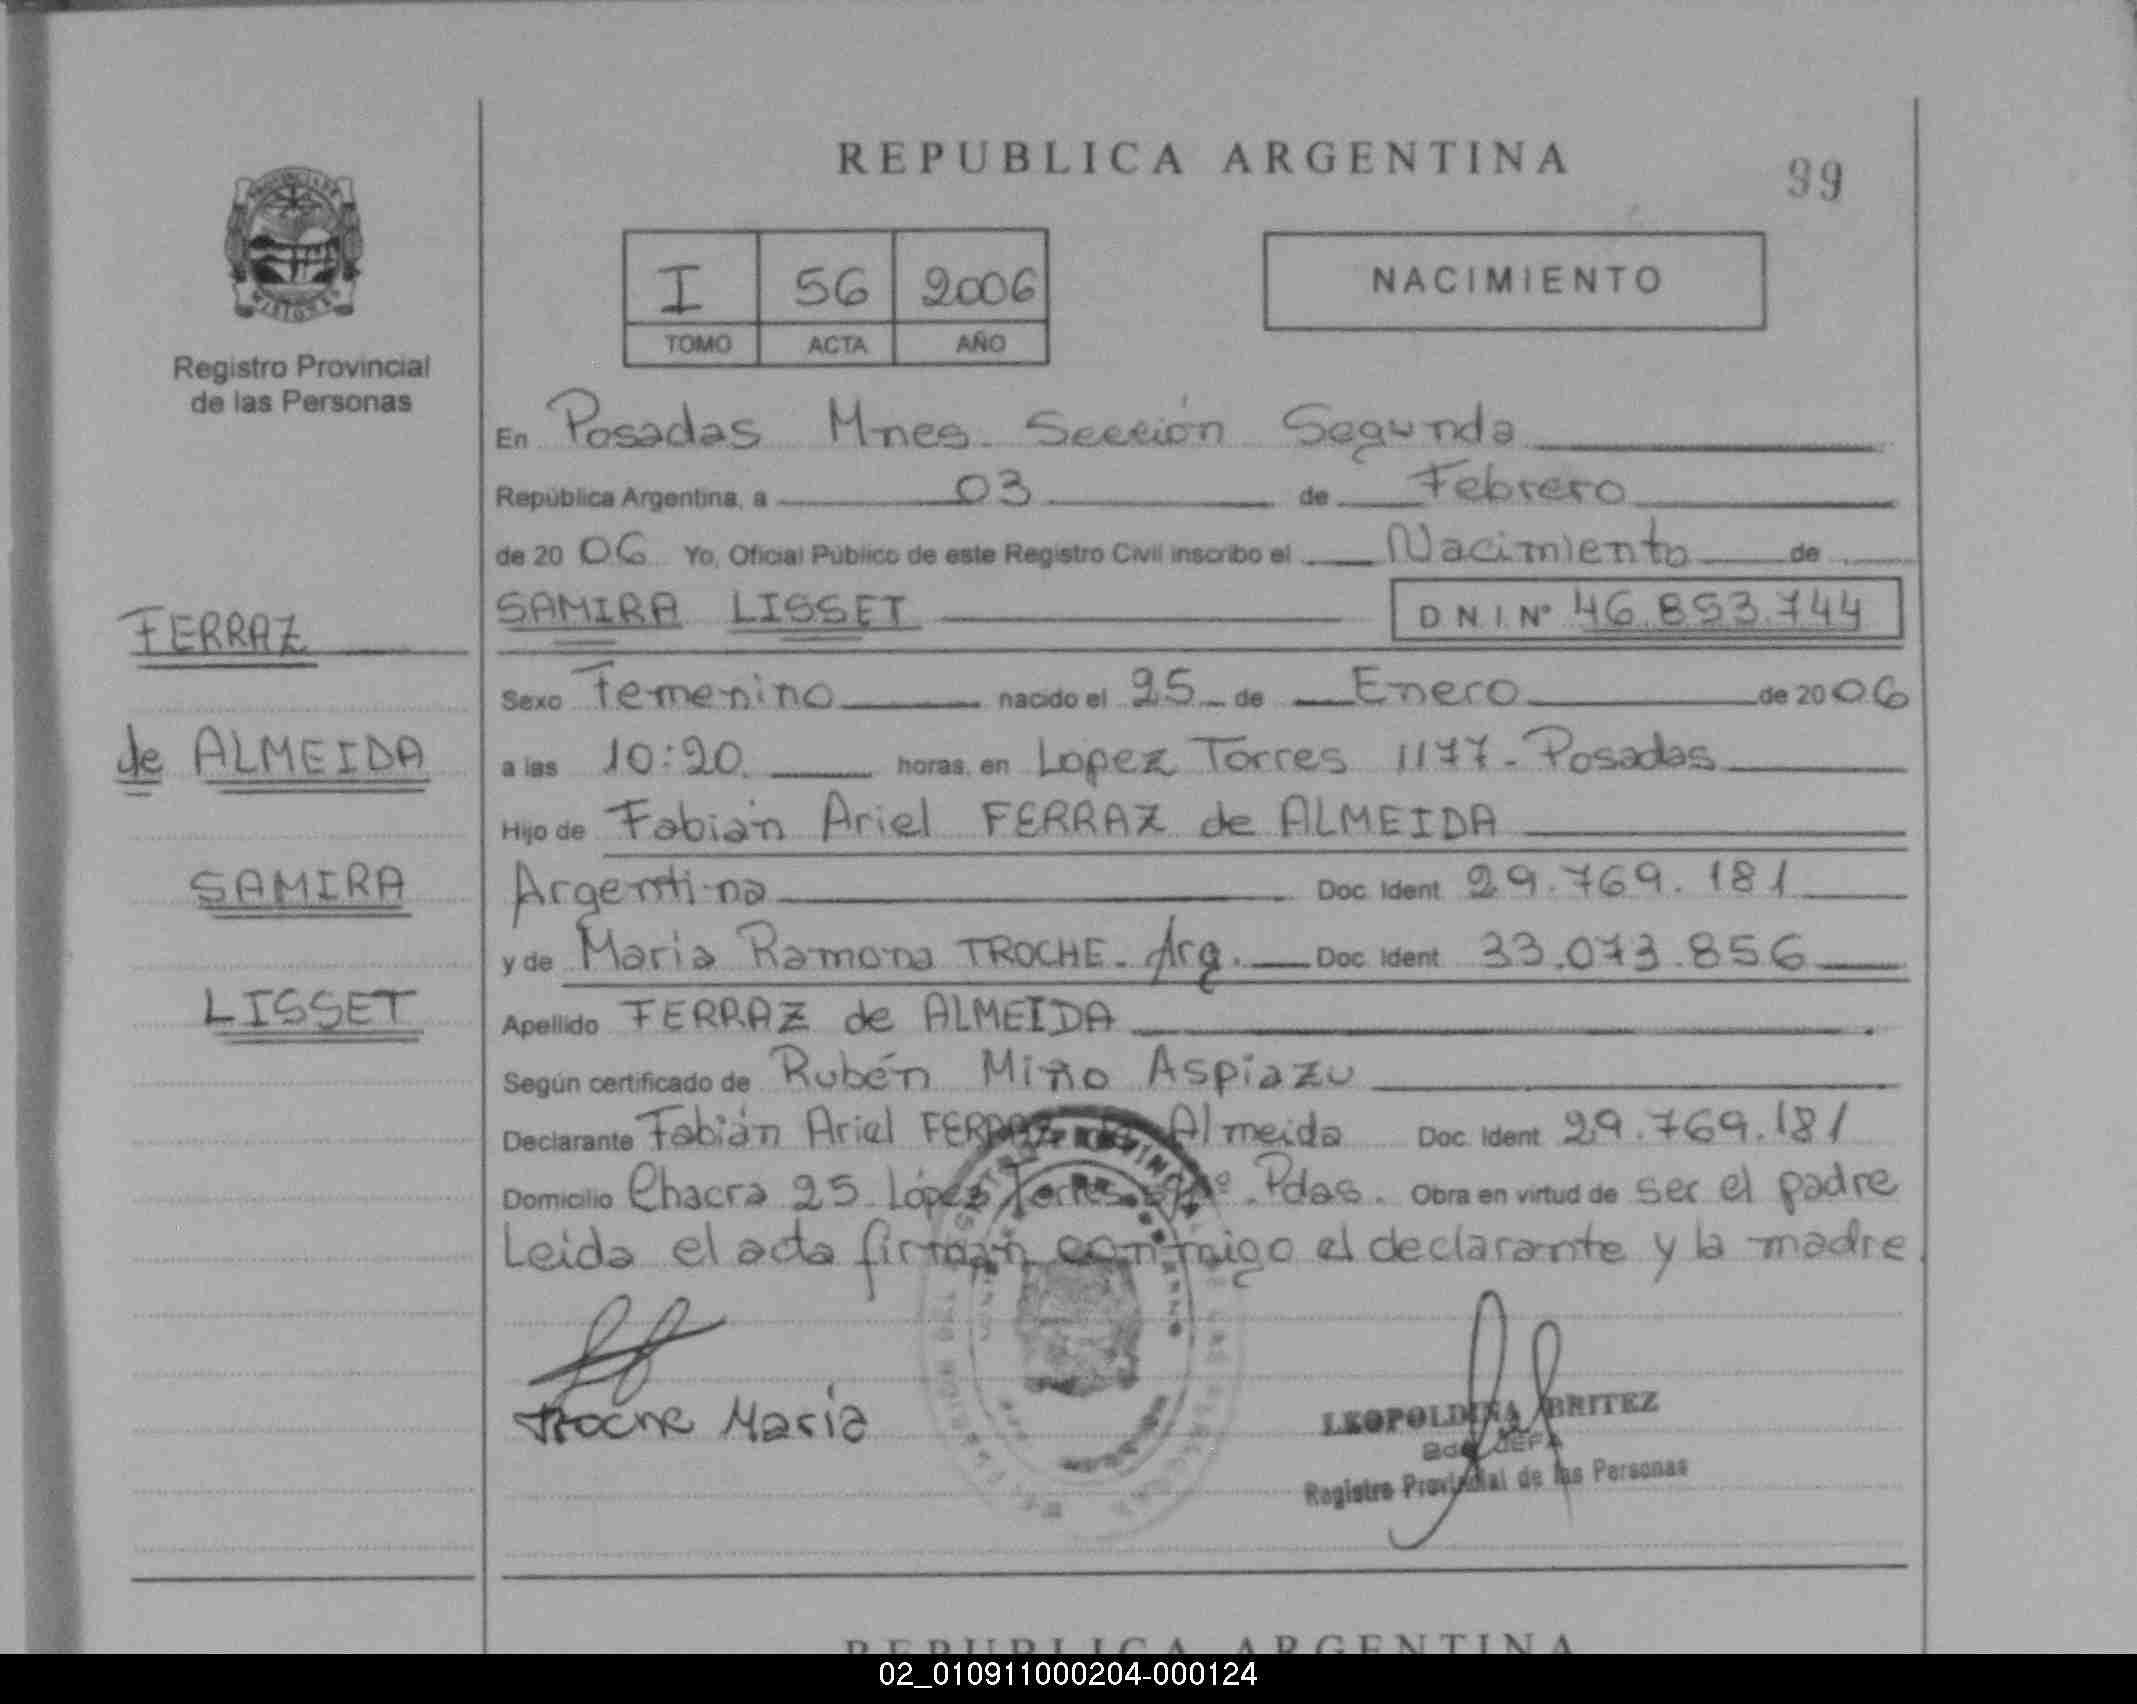 REPUBLICA ARGENTINA
99
I 56 2006
TOMO ACTA AÑO
NACIMIENTO
Registro Provincial
de las Personas
FERRAZ
de ALMEIDA
SAMIRA
LISSET
En Posadas Mnes. Sección Segunda
República Argentina, a 03 de Febrero
de 20 06 Yo, Oficial Público de este Registro Civil inscribo el Nacimiento de
SAMIRA LISSET D N I Nº 46.853.744
Sexo Femenino nacido el 25 de Enero de 20 06
a las 10:20 horas, en Lopez Torres 1177 - Posadas
Hijo de Fabián Ariel FERRAZ de ALMEIDA
Argentina Doc. Ident. 29.769.181
y de Maria Ramona TROCHE - Arg. Doc. Ident. 33.073.856
Apellido FERRAZ de ALMEIDA
Según certificado de Rubén Miño Aspiazu
Declarante Fabián Ariel FERRAZ Almeida Doc. Ident. 29.769.181
Domicilio Chacra 25 López Torres Pdas. Obra en virtud de ser el padre
Leida el acta firman conmigo el declarante y la madre
Troche Maria
LEOPOLDINA BRITEZ
2da JEFA
Registro Provincial de las Personas
REPUBLICA ARGENTINA
02_010911000204-000124